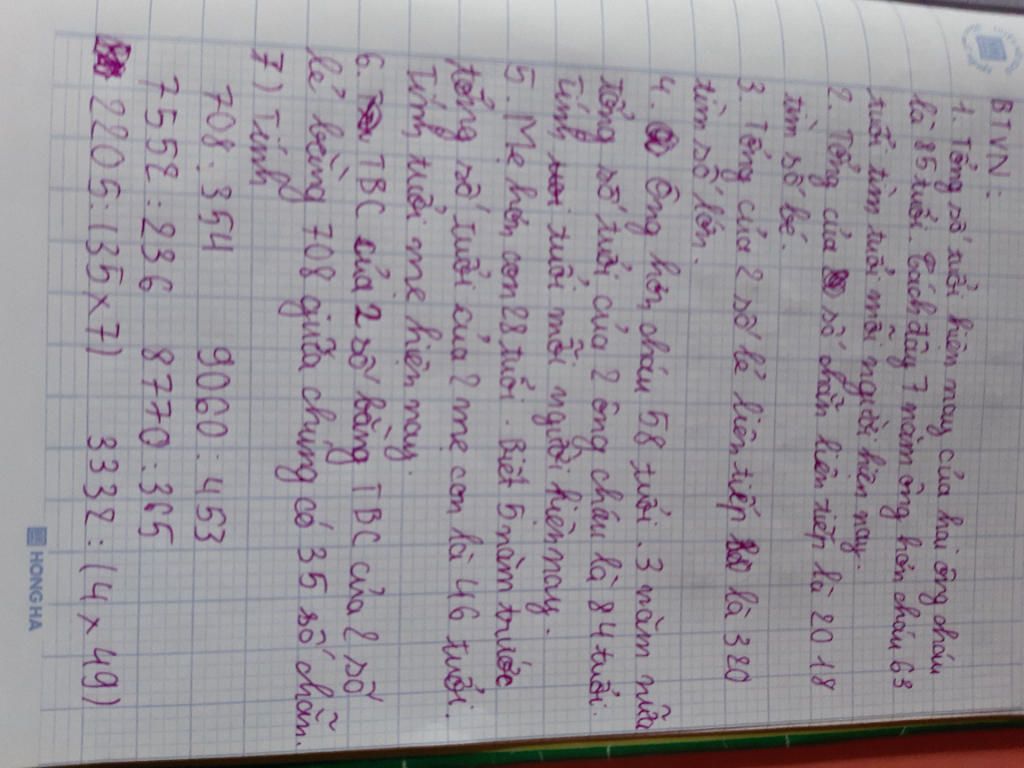 BTVN:
1. Tổng số tuổi hiện nay của hai ông cháu
là 85 tuổi. Cách đây 7 năm ông hơn cháu 63
tuổi tìm tuổi mỗi người hiện nay.
2. Tổng của số chẵn liên tiếp là 2018
tìm số bé.
3. Tổng của 2 số lẻ liên tiếp là 320
tìm số lớn.
4. Ông hơn cháu 58 tuổi. 3 năm nữa
tổng số tuổi của 2 ông cháu là 84 tuổi.
Tính tuổi mỗi người hiện nay.
5. Mẹ hơn con 28 tuổi. Biết 5 năm trước
tổng số tuổi của 2 mẹ con là 46 tuổi.
Tính tuổi mẹ hiện nay.
6. TBC của 2 số bằng TBC của 2 số
lẻ bằng 708 giữa chung có 35 số chẵn.
7) Tính
708 : 354 9060 : 453
7552 : 236 8770 : 365
2205 : (35 x 7) 3332 : (4 x 49)
HONG HA